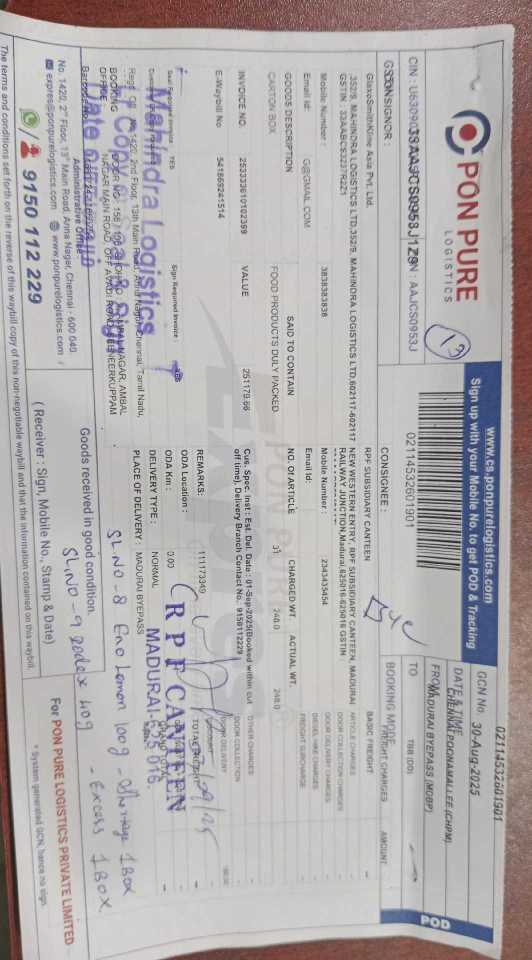 PON PURE
LOGISTICS
13
www.cs.ponpurelogistics.com
Sign up with your Mobile No. to get POD & Tracking
02114532601901
GCN No
30-Aug-2025
DATE & TIME
CHENNAI POONAMALLEE (CHPM)
FROM
MADURAI BYEPASS (MDBP)
TO
TBB (DD)
BOOKING MODE
POD
02114532601901
CONSIGNOR :
GlaxoSmithKline Asia Pvt. Ltd.
352/9, MAHINDRA LOGISTICS LTD,352/9, MAHINDRA LOGISTICS LTD,602117-602117
GSTIN : 33AABCS3237R2Z1
Mobile Number : 3838383838
Email id: G@GMAIL.COM
CONSIGNEE :
RPF SUBSIDIARY CANTEEN
NEW WESTERN ENTRY, RPF SUBSIDIARY CANTEEN, MADURAI
RAILWAY JUNCTION,Madurai,625016-625016 GSTIN :
Mobile Number : 2343435454
Email Id:
FREIGHT CHARGES AMOUNT
BASIC FREIGHT
ARTICLE CHARGES
DOOR COLLECTION CHARGES
DOOR DELIVERY CHARGES
DIESEL HIKE CHARGES
FREIGHT SURCHARGE
OTHER CHARGES
DOOR COLLECTION
DOOR DELIVERY
GOODS DESCRIPTION SAID TO CONTAIN NO. OF ARTICLE CHARGED WT. ACTUAL WT.
CARTON BOX FOOD PRODUCTS DULY PACKED 31 248.0 248.0
INVOICE NO. 253333610102399 VALUE 251179.66
Cus. Spec. Inst : Est. Del. Date : 01-Sep-2025(Booked within cut
off time), Delivery Branch Contact No. 9159112229
E-Waybill No 541869241514
REMARKS: 1111173349
ODA Location :
ODA Km : 0.00
DELIVERY TYPE : NORMAL
PLACE OF DELIVERY : MADURAI BYEPASS
YES Sign Required Invoice :
Mahindra Logistics
RPF CANTEEN
MADURAI-625 016.
BOOKING
OFFICE
Administrative Office :
No. 1420, 2nd Floor, 13th Main Road, Anna Nagar, Chennai - 600 040.
expres@ponpurelogistics.com www.ponpurelogistics.com
9150 112 229
Goods received in good condition.
SL.NO-8 Eno Lemon 100g - Shortage 1 Box
SL.NO-9 - Excess 1 BOX.
( Receiver : Sign, Mobile No., Stamp & Date)
For PON PURE LOGISTICS PRIVATE LIMITED
* System generated GCN, hence no sign.
The terms and conditions set forth on the reverse of this waybill copy of this non-negotiable waybill and that the information contained on this waybill.